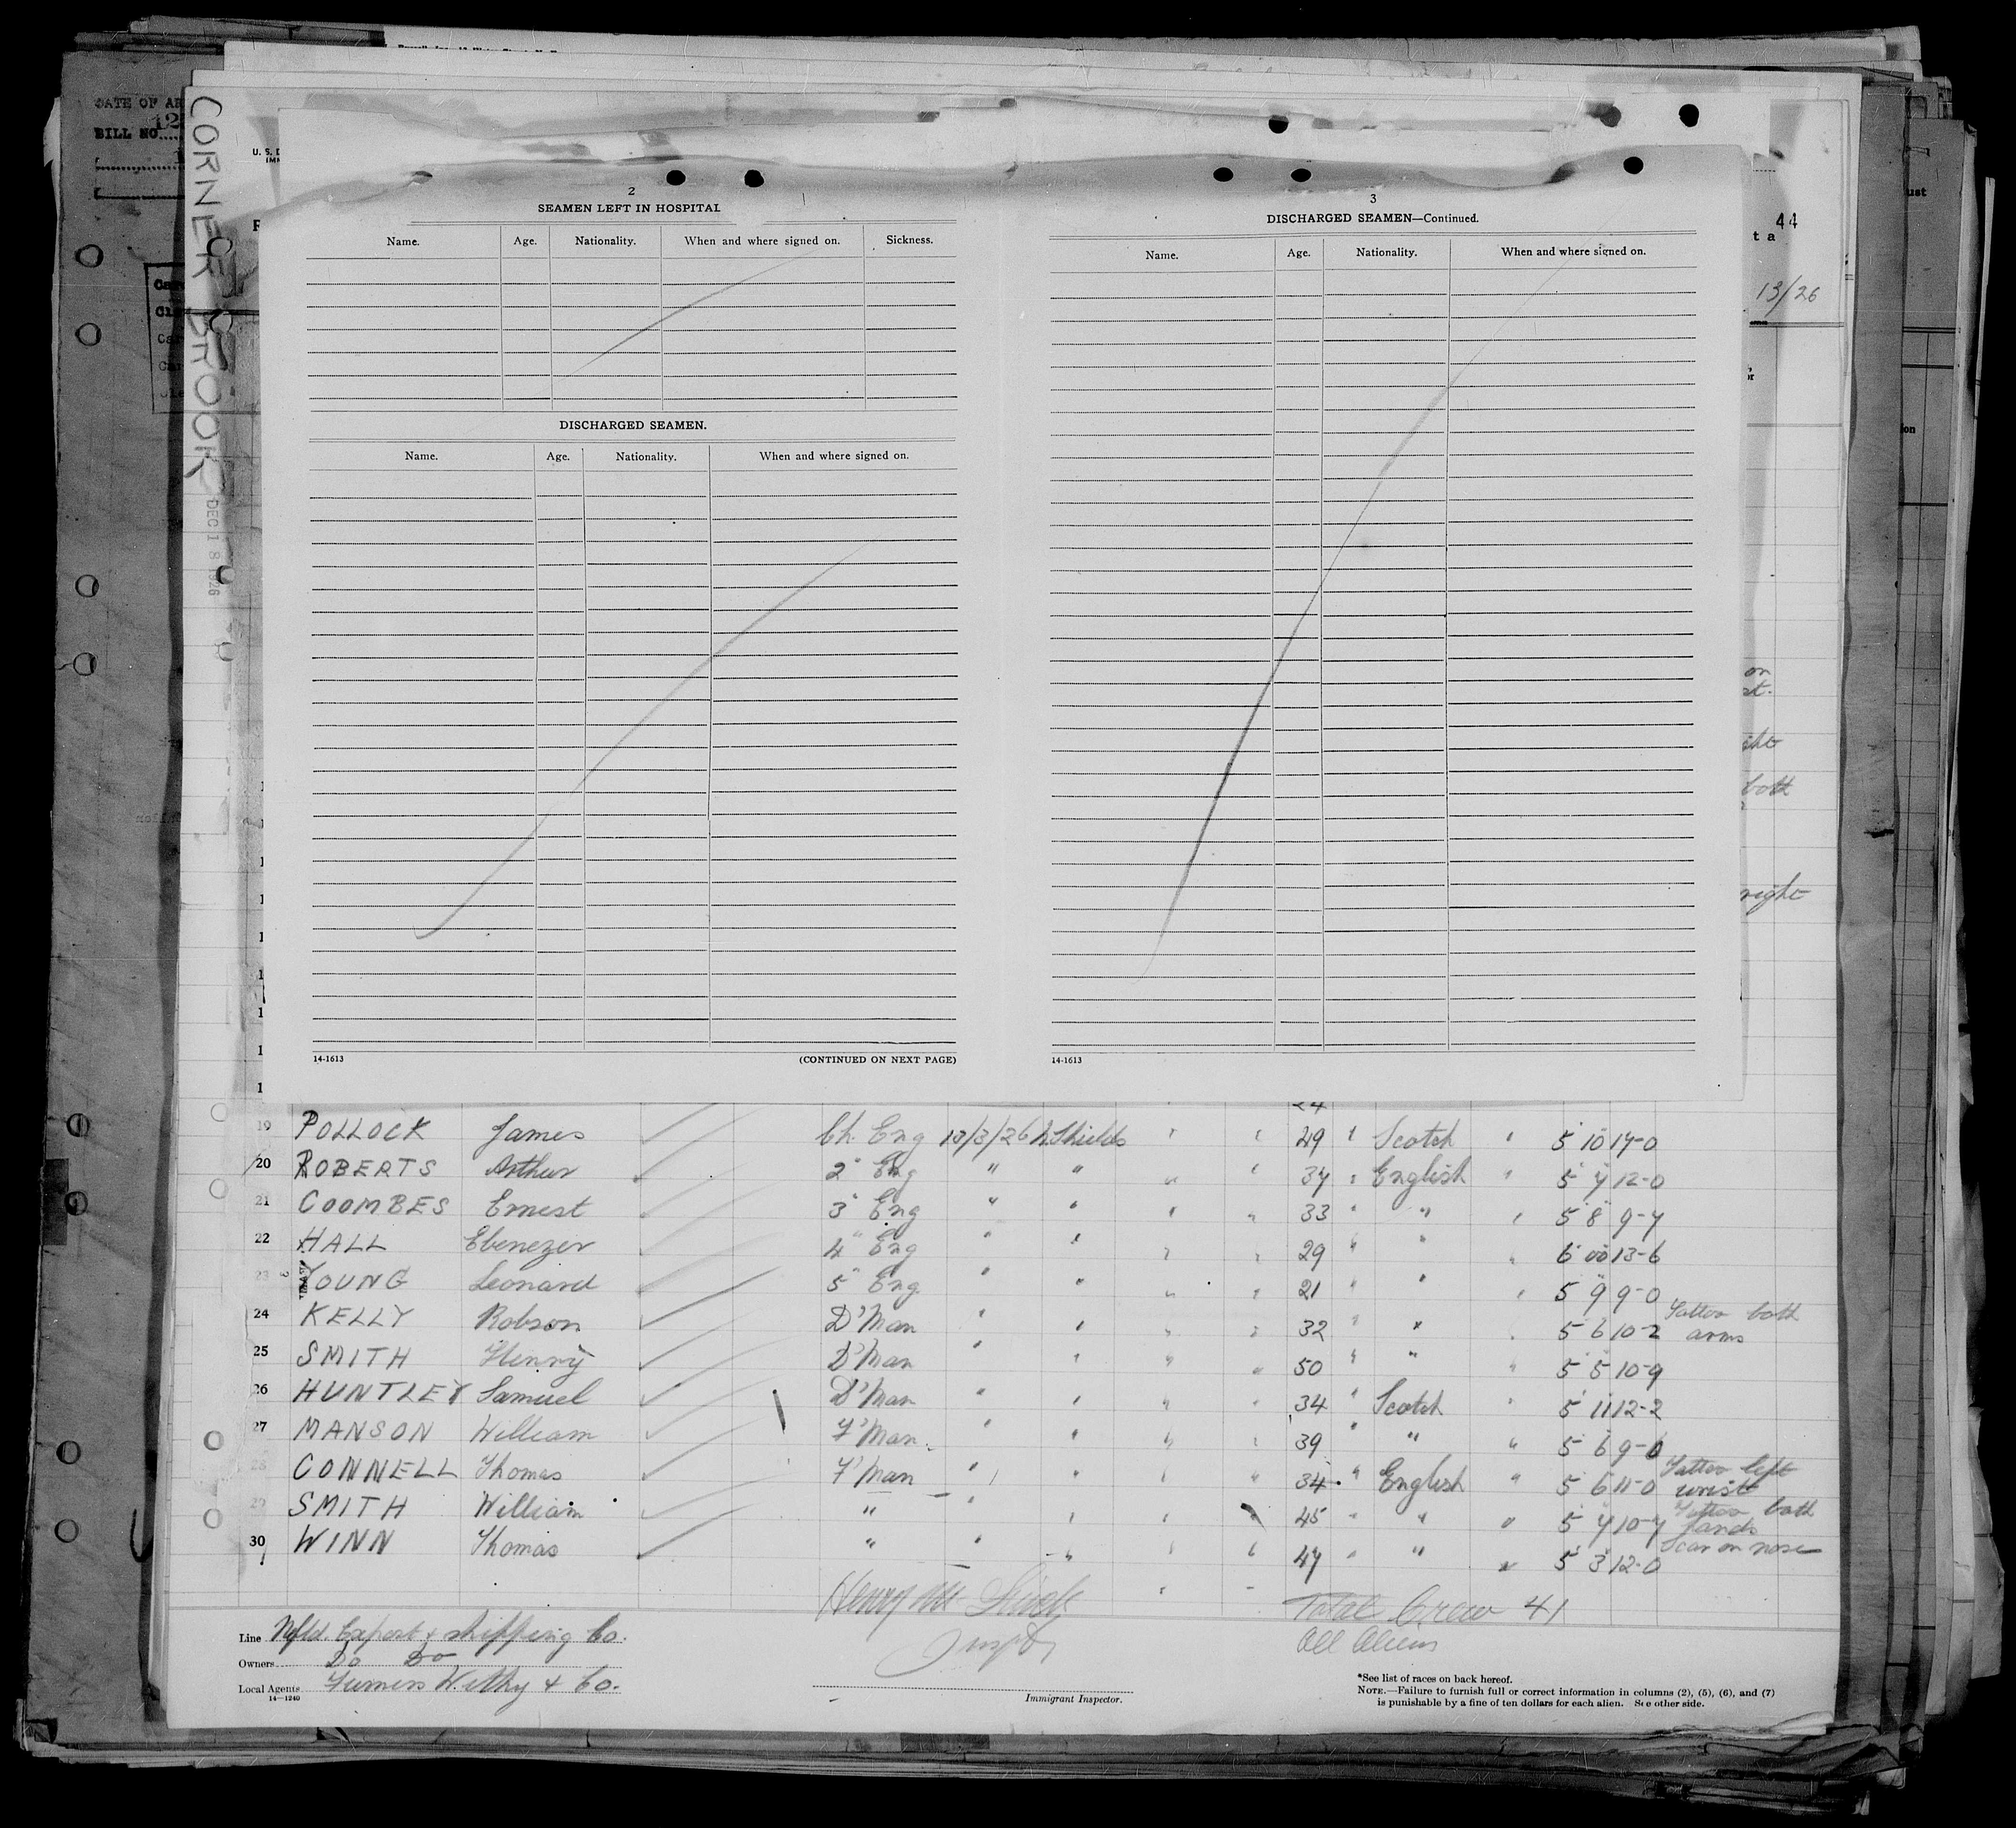 DATE OF AR
BILL NO. 12
CORNER BROOK
DEC 18 1926
U. S. D
IMM
44
t a
13/26
ust
ion
2
SEAMEN LEFT IN HOSPITAL
Name. Age. Nationality. When and where signed on. Sickness.
DISCHARGED SEAMEN.
Name. Age. Nationality. When and where signed on.
14-1613 (CONTINUED ON NEXT PAGE)
3
DISCHARGED SEAMEN—Continued.
Name. Age. Nationality. When and where signed on.
14-1613
on
st.
both
right
24
19 POLLOCK James Ch. Eng 13/3/26 N. Shields " " 49 " Scotch " 5 10 14-0
20 ROBERTS Arthur 2" Eng " " " " 34 " English " 5 4 12-0
21 COOMBES Ernest 3" Eng " " " " 33 " " " 5 8 9-4
22 HALL Ebenezer 4" Eng " " " " 29 " " " 6 00 13-6
23 YOUNG Leonard 5" Eng " " " " 21 " " " 5 9 9-0
24 KELLY Robson D'Man " " " " 32 " " " 5 6 10-2 Tattoo both arms
25 SMITH Henry D'Man " " " " 50 " " " 5 5 10-9
26 HUNTLEY Samuel D'Man " " " " 34 " Scotch " 5 11 12-2
27 MANSON William F'Man " " " " 39 " " " 5 6 9-6
28 CONNELL Thomas F'Man " " " " 34 " English " 5 6 11-0 Tattoo left wrist
29 SMITH William " " " " " 45 " " " 5 4 10-4 Tattoo both hands
30 WINN Thomas " " " " " 47 " " " 5 3 12-0 Scar on nose
Total Crew 41
All Aliens
Line Nfld. Export & Shipping Co.
Owners Do Do
Local Agents Furness Withy & Co.
14—1240
Immigrant Inspector.
*See list of races on back hereof.
NOTE.—Failure to furnish full or correct information in columns (2), (5), (6), and (7)
is punishable by a fine of ten dollars for each alien. See other side.